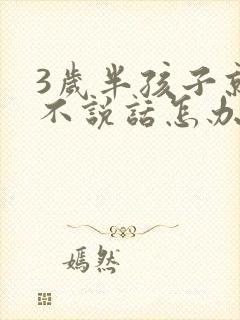 3歲半孩子
不說話怎办
嫣然